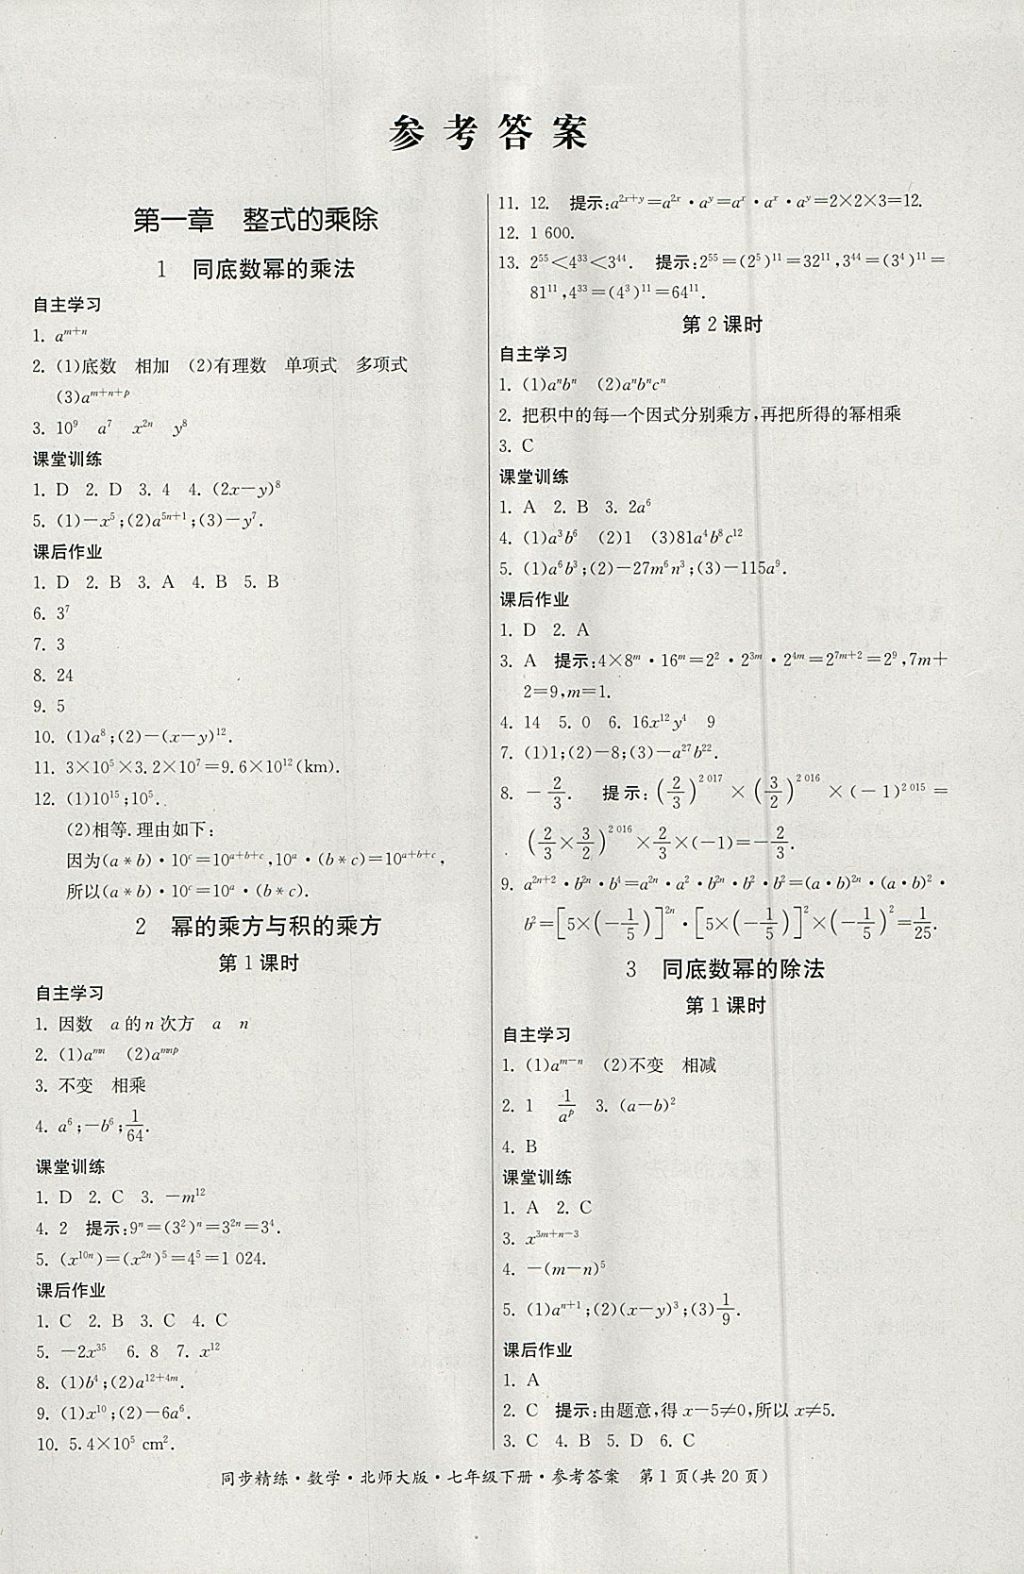 参考答案
第一章 整式的乘除
1 同底数幂的乘法
自主学习
1. a^{m+n}
2. (1)底数 相加 (2)有理数 单项式 多项式
(3)a^{m+n+p}
3. 10⁹ a⁷ x^{2n} y⁸
课堂训练
1. D 2. D 3. 4 4. (2x−y)⁸
5. (1)−x⁵;(2)a^{5n+1};(3)−y⁷.
课后作业
1. D 2. B 3. A 4. B 5. B
6. 3⁷
7. 3
8. 24
9. 5
10. (1)a⁸;(2)−(x−y)¹².
11. 3×10⁵×3.2×10⁷=9.6×10¹²(km).
12. (1)10¹⁵;10⁵.
(2)相等.理由如下:
因为(a*b)·10^c=10^{a+b+c},10^a·(b*c)=10^{a+b+c},
所以(a*b)·10^c=10^a·(b*c).
2 幂的乘方与积的乘方
第1课时
自主学习
1. 因数 a的n次方 a n
2. (1)a^{mn} (2)a^{mnp}
3. 不变 相乘
4. a⁶;−b⁶;1/64.
课堂训练
1. D 2. C 3. −m¹²
4. 2 提示:9^n=(3²)^n=3^{2n}=3⁴.
5. (x^{10n})=(x^{2n})⁵=4⁵=1 024.
课后作业
1. C 2. B 3. C 4. C
5. −2x³⁵ 6. 8 7. x¹²
8. (1)b⁴;(2)a^{12+4m}.
9. (1)x¹⁰;(2)−6a⁶.
10. 5.4×10⁵ cm².
11. 12. 提示:a^{2x+y}=a^{2x}·a^y=a^x·a^x·a^y=2×2×3=12.
12. 1 600.
13. 2⁵⁵<4³³<3⁴⁴. 提示:2⁵⁵=(2⁵)¹¹=32¹¹,3⁴⁴=(3⁴)¹¹=
81¹¹,4³³=(4³)¹¹=64¹¹.
第2课时
自主学习
1. (1)a^n b^n (2)a^n b^n c^n
2. 把积中的每一个因式分别乘方,再把所得的幂相乘
3. C
课堂训练
1. A 2. B 3. 2a⁶
4. (1)a³b⁶ (2)1 (3)81a⁴b⁸c¹²
5. (1)a⁶b³;(2)−27m⁶n³;(3)−115a⁹.
课后作业
1. D 2. A
3. A 提示:4×8^m·16^m=2²·2^{3m}·2^{4m}=2^{7m+2}=2⁹,7m+
2=9,m=1.
4. 14 5. 0 6. 16x¹²y⁴ 9
7. (1)1;(2)−8;(3)−a²⁷b²².
8. −2/3. 提示:(2/3)^{2 017}×(3/2)^{2 016}×(−1)^{2 015}=
(2/3×3/2)^{2 016}×2/3×(−1)=−2/3.
9. a^{2n+2}·b^{2n}·b⁴=a^{2n}·a²·b^{2n}·b²·b²=(a·b)^{2n}·(a·b)²·
b²=[5×(−1/5)]^{2n}·[5×(−1/5)]²×(−1/5)²=1/25.
3 同底数幂的除法
第1课时
自主学习
1. (1)a^{m−n} (2)不变 相减
2. 1 1/a^p 3. (a−b)²
4. B
课堂训练
1. A 2. C
3. x^{3m+n−3}
4. −(m−n)⁵
5. (1)a^{n+1};(2)(x−y)³;(3)1/9.
课后作业
1. A
2. C 提示:由题意,得x−5≠0,所以x≠5.
3. C 4. B 5. D 6. C
同步精练·数学·北师大版·七年级下册·参考答案 第1页(共20页)